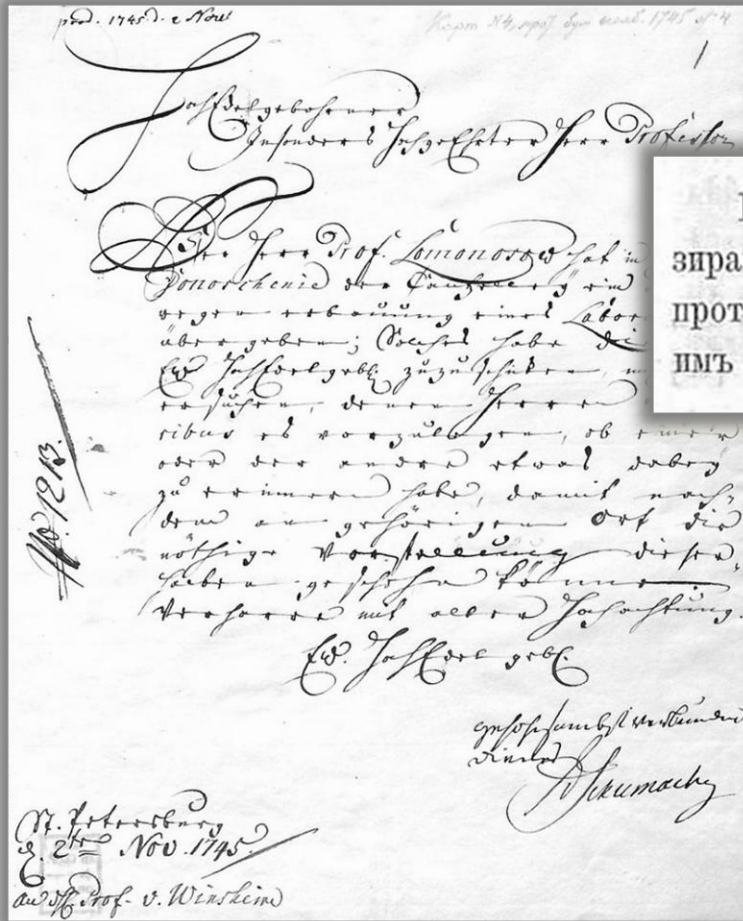 prod. 1745 d. 2 Nov.
1745 № 4
1
HochEdelgebohrner
Insonders HochgeEhrter Herr Professor
Der Herr Prof. Lomonosow hat in
Donoschenie der Cantzeley ein
wegen erbauung eines Labor
übergeben; Solches habe
Ew HochEdelgebl. zuzuschicken,
ersuchen, denen Herren
ribus es vorzulegen, ob einer
oder der andre etwas dabey
zu erinnern habe, damit nach-
dem an gehörigen Ort die
nöthige Vorstellung dieser-
halben geschehn könne.
Verharre mit aller Hochachtung.
Ew. HochEdelgebl.
gehorsambst verbundener
diener
Schumacher
St. Petersburg
d. 2ten Nov. 1745
an Prof. v. Winsheim
No 1213.
зира
прот
имъ